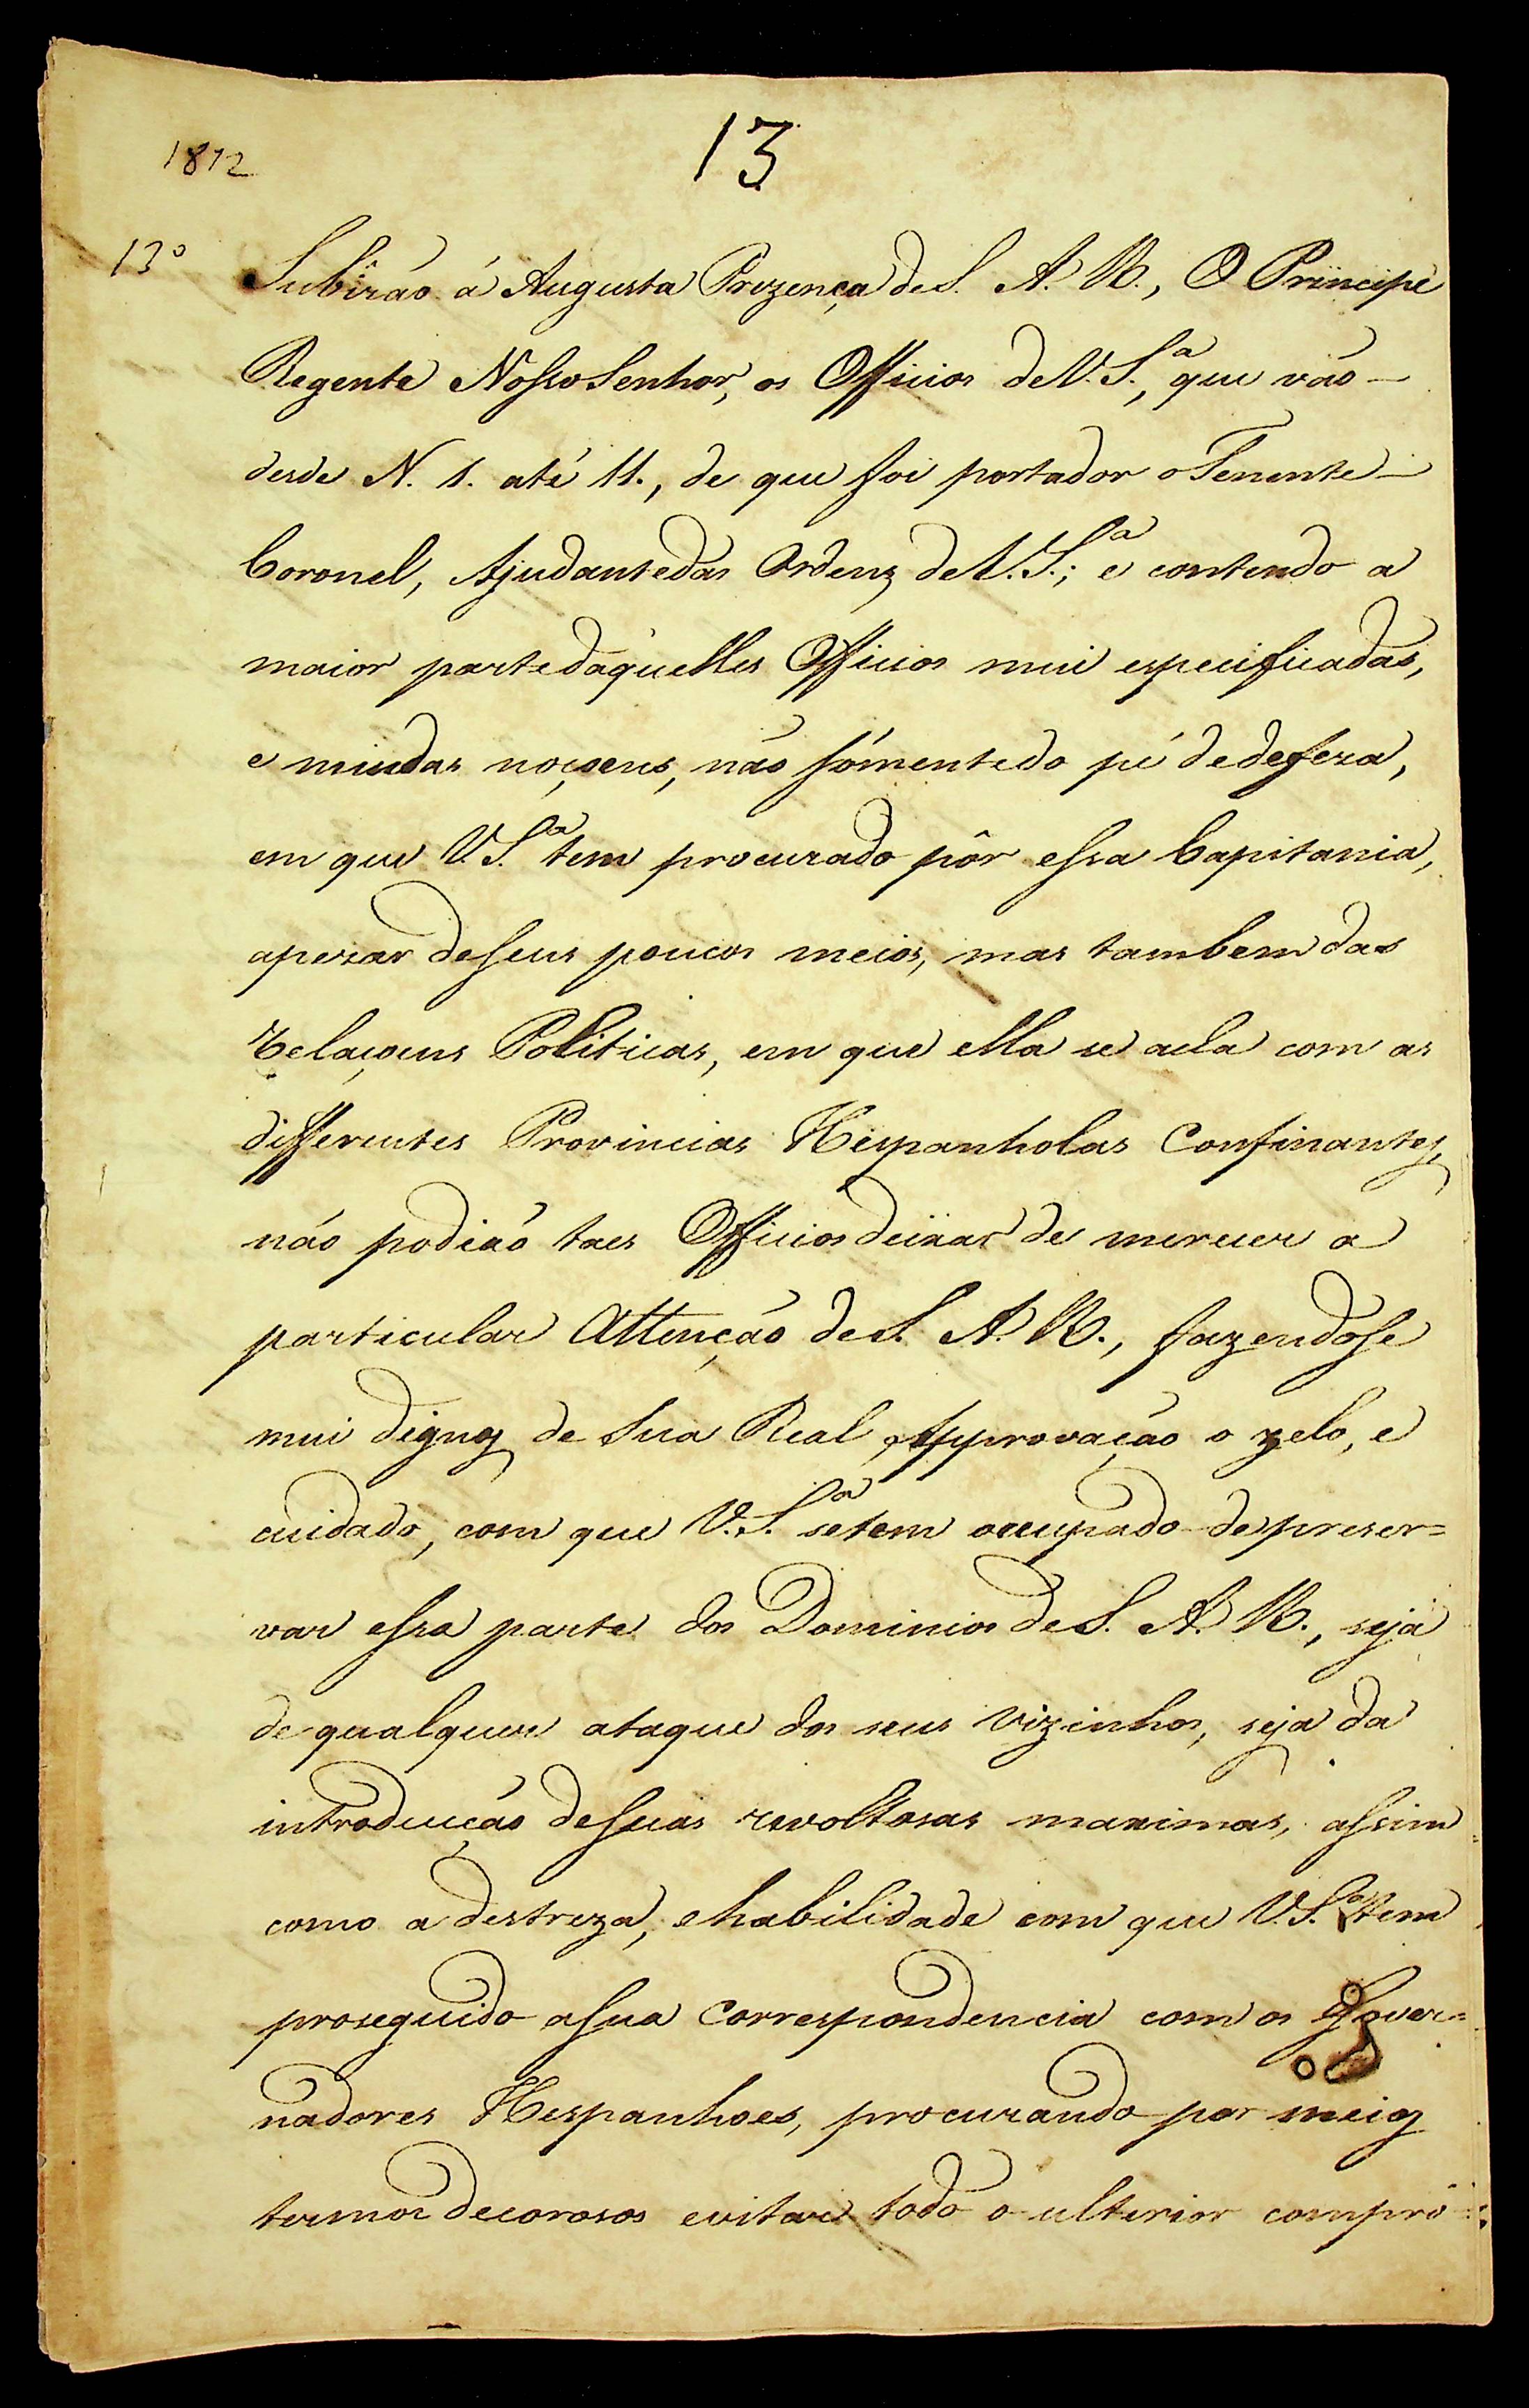 13
1812
13º
Subirão á Augusta Prezença de S. A. R., O Principe
Regente Nosso Senhor, os Officios de V. S.ª, que vão
desde N. 1. até 11., de que foi portador o Tenente
Coronel, Ajudante das Ordens de V. S.ª; e contendo a
maior parte daquelles Officios mui especificadas,
e miudas noçoens, não sómente do pé de defeza,
em que V. S.ª tem procurado pôr essa Capitania,
apezar de seus poucos meios, mas tambem das
relaçoens Politicas, em que ella se acha com as
differentes Provincias Hespanholas Confinantes,
não podião taes Officios deixar de merecer a
particular Attenção de S. A. R., fazendose
mui dignos de Sua Real Approvação o zelo, e
cuidado, com que V. S.ª se tem occupado de preser=
var essa parte dos Dominios de S. A. R., seja
de qualquer ataque dos seus vizinhos, seja da
introducção de suas revoltosas maximas, assim
como a destreza, e habilidade com que V. S.ª tem
proseguido a sua Correspondencia com os Gover=
nadores Hespanhoes, procurando por meios
termos decorosos evitar todo o ulterior compro=